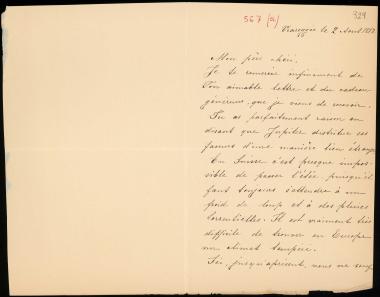 567 (a)
329
le 2 Août 188
Mon père chéri.
Je te remercie infiniment de
Ton aimable lettre et du cadeau
généreux, que je viens de recevoir.
Tu as parfaitement raison en
disant que Jupiter distribue ses
faveurs d'une manière bien étrange
En Suisse c'est presque impos-
sible de passer l'été puisqu'il
faut toujours s'attendre à un
froid de loup et à des pluies
torrentielles. Il est vraiment très
difficile de trouver en Europe
un climat tempéré.
Ici, jusqu'à présent, nous ne